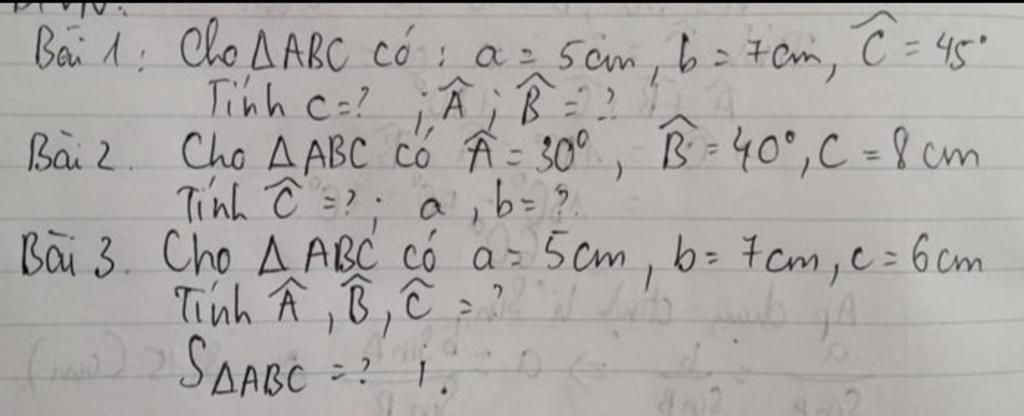 Bài 1: Cho ΔABC có: a = 5cm, b = 7cm, Ĉ = 45°
Tính c = ? ; Â ; B̂ = ?
Bài 2. Cho ΔABC có Â = 30°, B̂ = 40°, C = 8cm
Tính Ĉ = ? ; a, b = ?
Bài 3. Cho ΔABC có a = 5cm, b = 7cm, c = 6cm
Tính Â, B̂, Ĉ = ?
SΔABC = ?